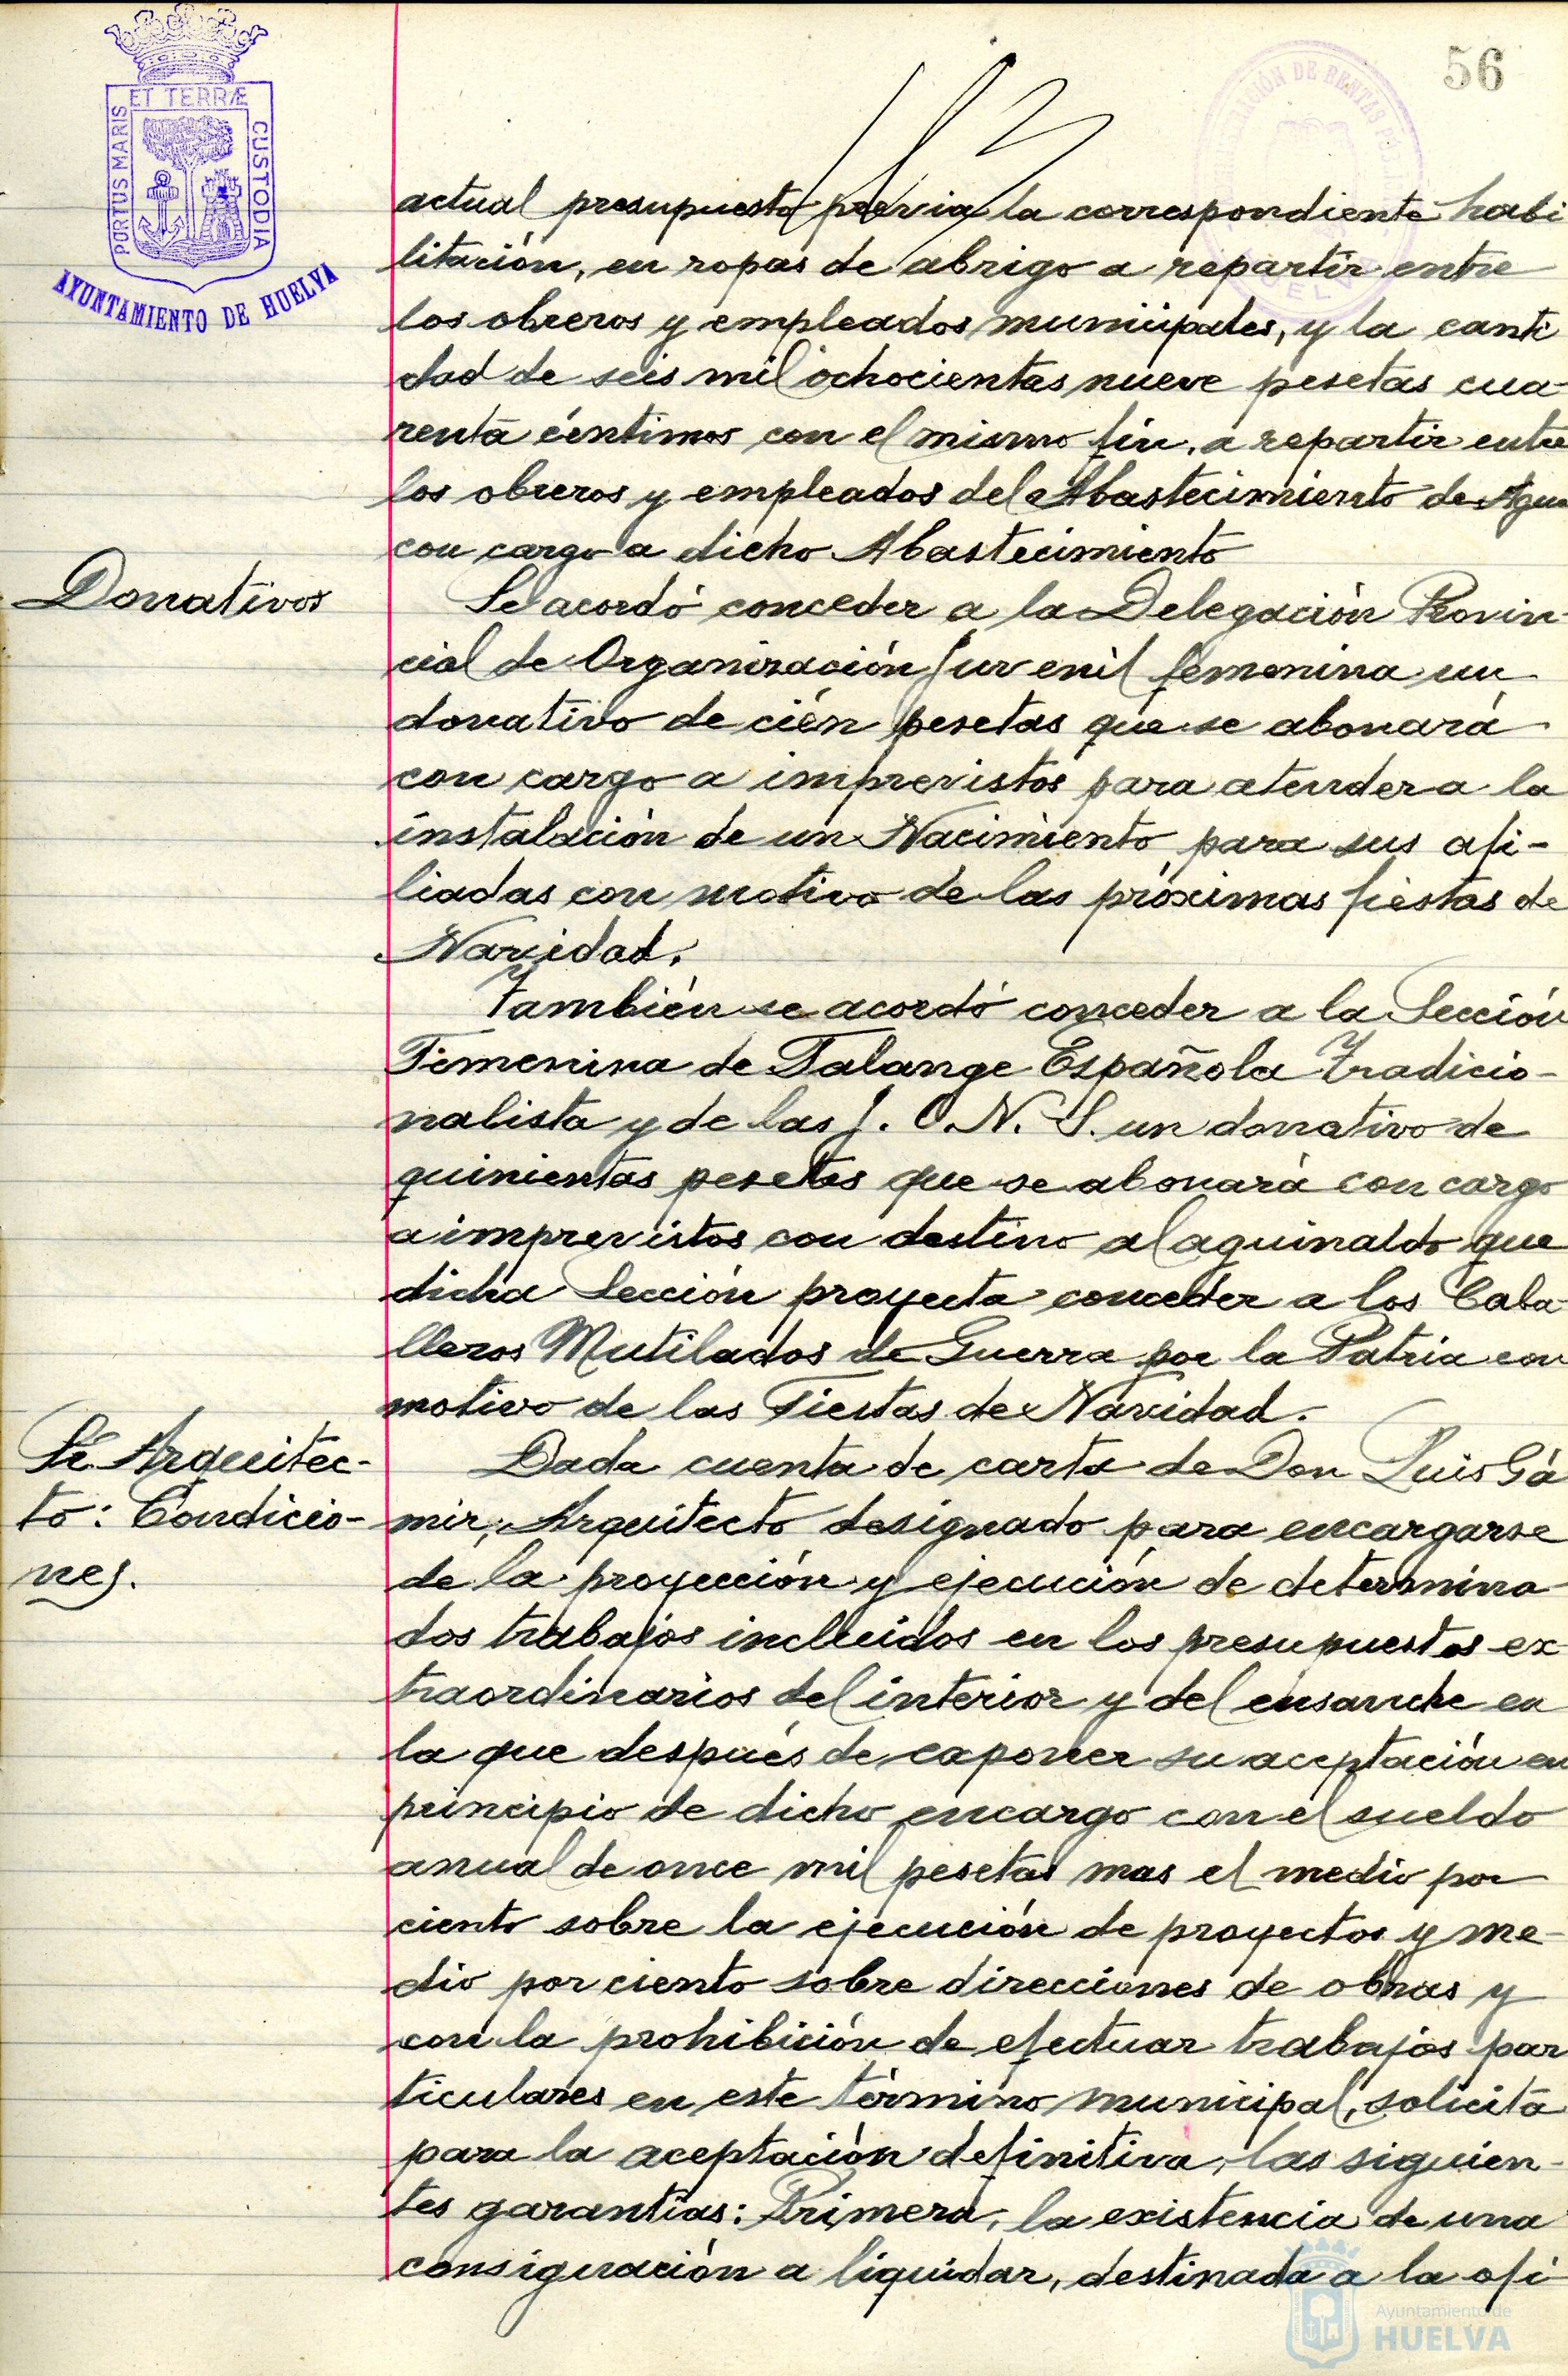 56
ET TERRÆ
PORTUS MARIS
CUSTODIA
AYUNTAMIENTO DE HUELVA
actual presupuesto previa la correspondiente habi
litación, en ropas de abrigo a repartir entre
los obreros y empleados municipales, y la canti
dad de seis mil ochocientas nueve pesetas cua-
renta céntimos con el mismo fin, a repartir entre
los obreros y empleados del Abastecimiento de Agua
con cargo a dicho Abastecimiento
Donativos
Se acordó conceder a la Delegación Provin-
cial de Organización Juvenil femenina un
donativo de cién pesetas que se abonará
con cargo a imprevistos para atender a la
instalación de un Nacimiento para sus afi-
liadas con motivo de las próximas fiestas de
Navidad.
También se acordó conceder a la Sección
Femenina de Falange Española Tradicio-
nalista y de las J. O. N. S. un donativo de
quinientas pesetas que se abonará con cargo
a imprevistos con destino al aguinaldo que
dicha Sección proyecta conceder a los Caba-
lleros Mutilados de Guerra por la Patria con
motivo de las Fiestas de Navidad.
Sr. Arquitec-
to: Condicio-
nes.
Dada cuenta de carta de Don Luis Gá
mir, Arquitecto designado para encargarse
de la proyección y ejecución de determina
dos trabajos incluidos en los presupuestos ex-
traordinarios del interior y del ensanche en
la que después de exponer su aceptación en
principio de dicho encargo con el sueldo
anual de once mil pesetas mas el medio por
ciento sobre la ejecución de proyectos y me-
dio por ciento sobre direcciones de obras y
con la prohibición de efectuar trabajos par
ticulares en este término municipal, solicita
para la aceptación definitiva, las siguien-
tes garantías: Primera, la existencia de una
consignación a liquidar, destinada a la ofi
Ayuntamiento de
HUELVA